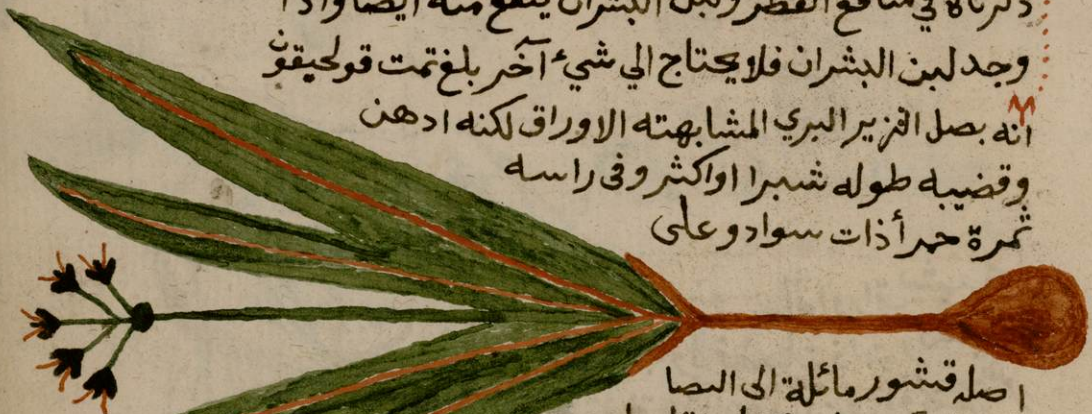 ذكرناه في منافع القطر ولبن البشران ينفع منه ايضا واذا
وجد لبن البشران فلا يحتاج الي شيء آخر بلغ تمت قولحيقون
انه بصل الزير البري المشابهته الاوراق لكنه ادهن
وقضيبه طوله شبرا او اكثر وفى راسه
ثمرة حمرأ ذات سواد وعلى
اصله قشور مائلة الى البصا